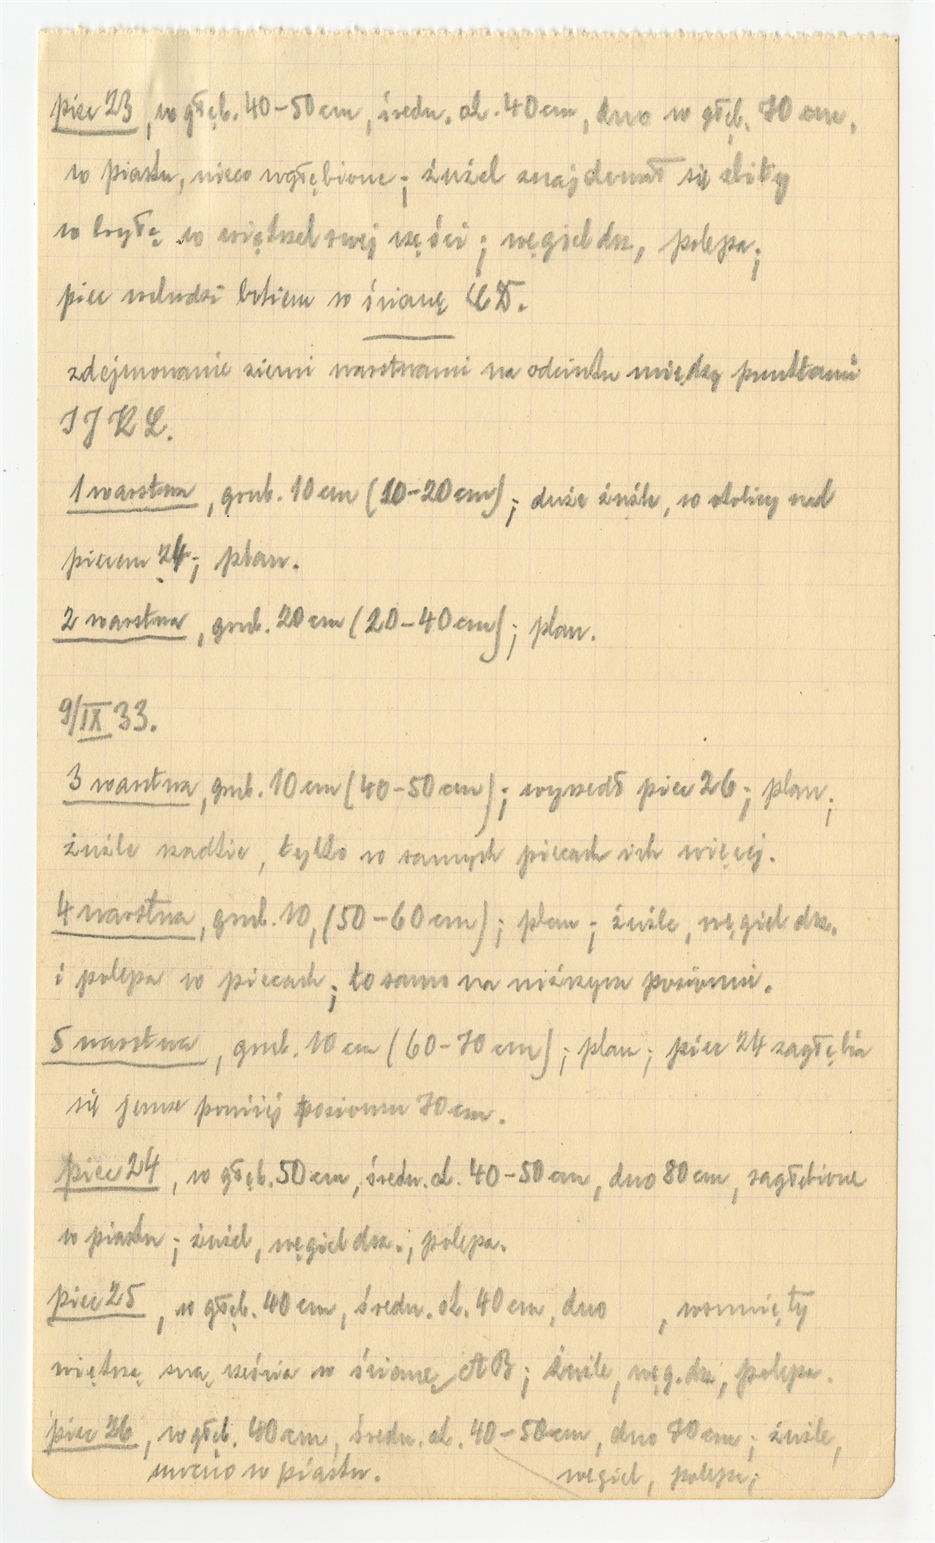 piec 23, w głęb. 40-50 cm, średn. ok. 40 cm, dno w głęb. 70 cm,
w piasku, nieco wgłębione; żużel znajdował się zbity
w bryłę w większej swej części; węgiel drz., polepa;
piec wchodzi bokiem w ścianę CD.
zdejmowanie ziemi warstwami na odcinku między punktami
I J K L.
1 warstwa, grub. 10 cm (10-20 cm); duże żużle, w okolicy nad
piecem 24; plan.
2 warstwa, grub. 20 cm (20-40 cm); plan.
9/IX 33.
3 warstwa, grub. 10 cm (40-50 cm); wyszedł piec 26; plan;
żużle rzadkie, tylko w samych piecach ich więcej.
4 warstwa, grub. 10, (50-60 cm); plan; żużle, węgiel drz.
i polepa w piecach; to samo na niższym poziomie.
5 warstwa, grub. 10 cm (60-70 cm); plan; piec 24 zagłębia
się jeszcze poniżej poziomu 70 cm.
piec 24, w głęb. 50 cm, średn. ok. 40-50 cm, dno 80 cm, zagłębione
w piasku; żużel, węgiel drz., polepa.
piec 25, w głęb. 40 cm, średn. ok. 40 cm, dno , wsunięty
większą swą częścią w ścianę AB; żużle, węg. drz., polepa.
piec 26, w głęb. 40 cm, średn. ok. 40-50 cm, dno 70 cm; żużle,
w piasku. węgiel, polepa;